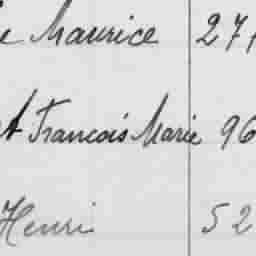 e Maurice 27,
t François Marie 96
Henri 52